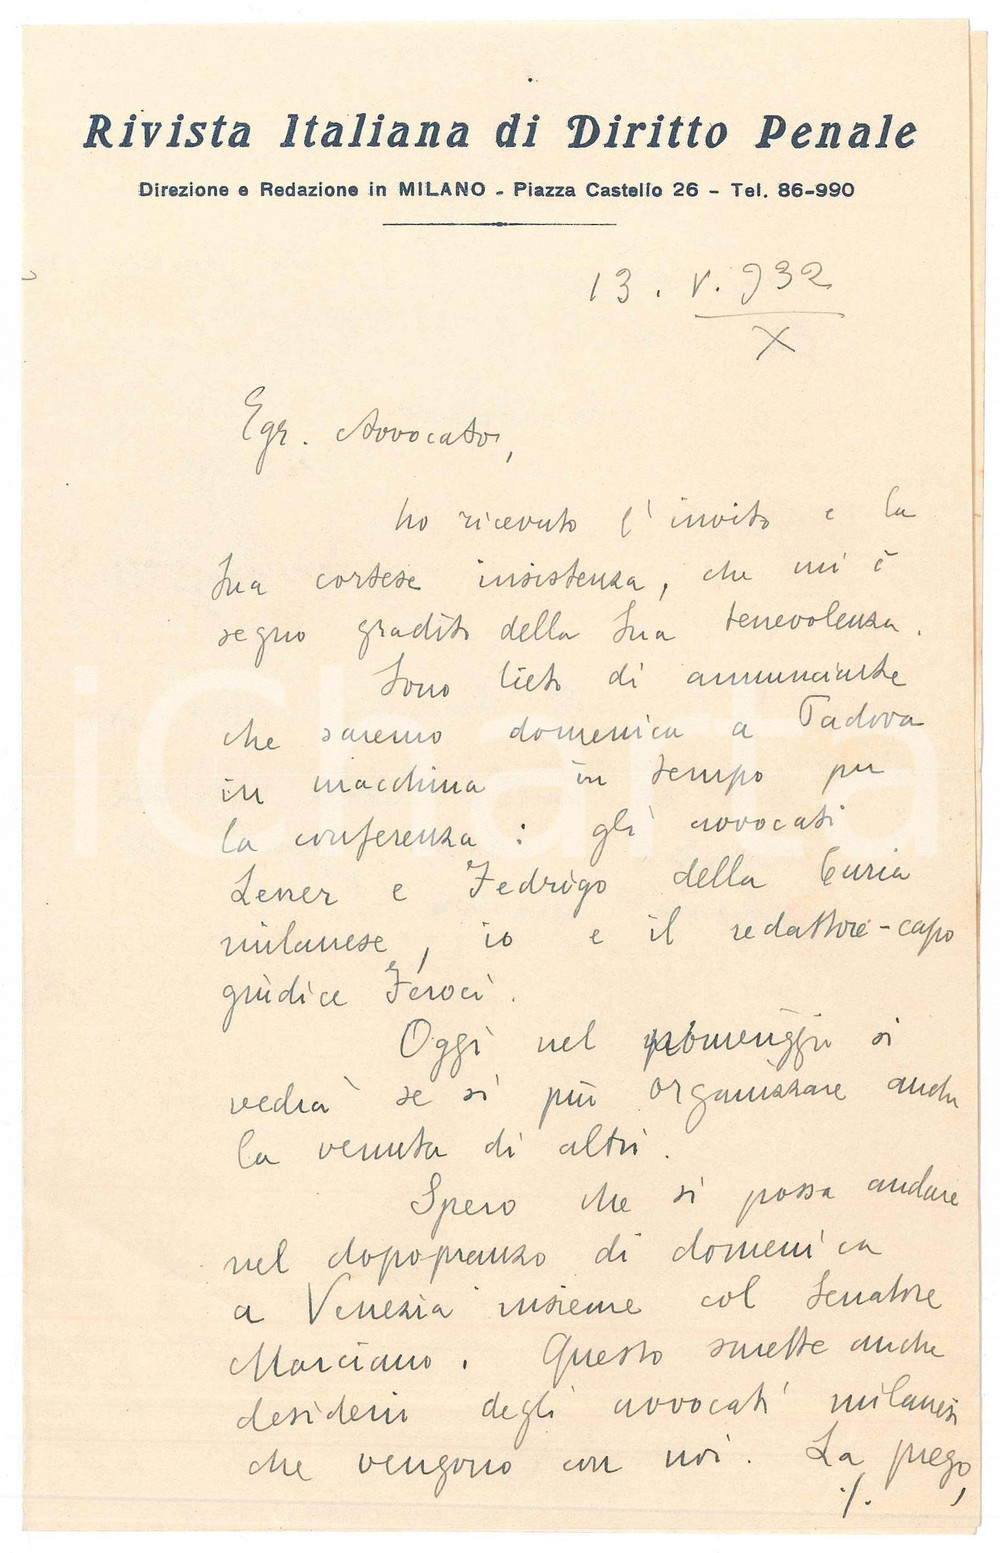 Rivista Italiana di Diritto Penale
Direzione e Redazione in MILANO - Piazza Castello 26 - Tel. 86-990
13. V. 932
X
Egr. Avvocato,
ho ricevuto l'invito e la
Sua cortese insistenza, che mi è
segno gradito della Sua benevolenza.
Sono lieto di annunciarle
che saremo domenica a Padova
in macchina in tempo per
la conferenza: gli avvocati
Lener e Fedrigo della Curia
milanese, io e il redattore-capo
giudice Feroci.
Oggi nel pomeriggio si
vedrà se si può organizzare anche
la venuta di altri.
Spero che si possa andare
nel dopopranzo di domenica
a Venezia insieme col Senatore
Marciano. Questo anche
desideri degli avvocati milanesi
che vengono con noi. La prego,
./.
iCharta